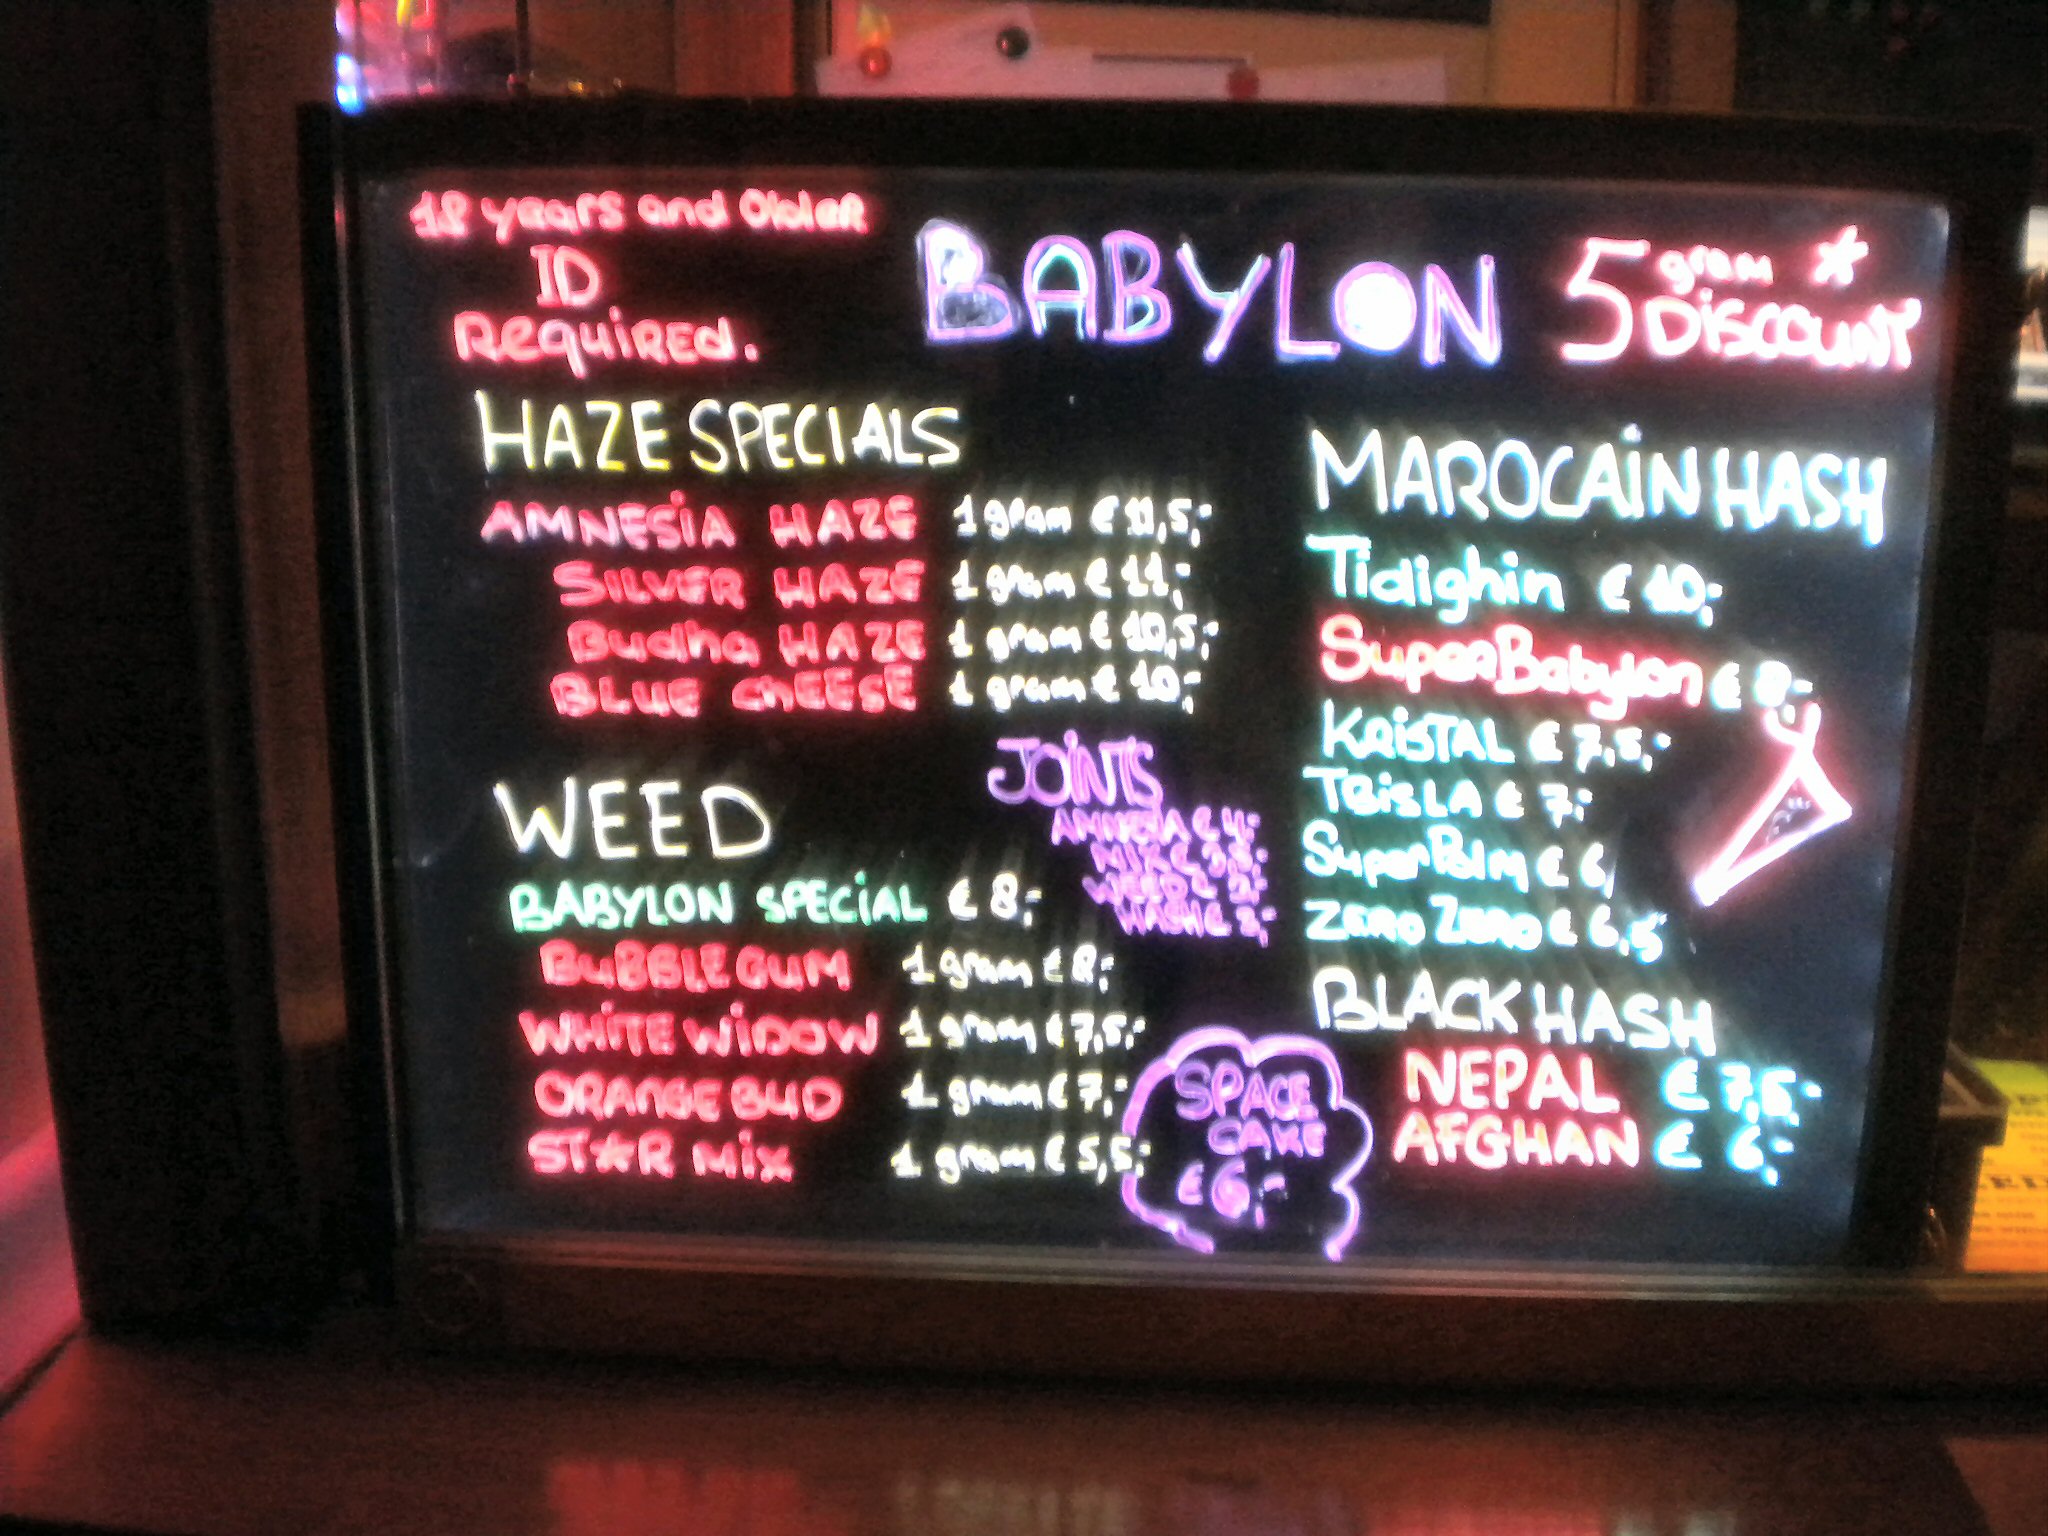 18 years and Older
ID
Required.
BABYLON
5 gram *
DISCOUNT
HAZE SPECIALS
AMNESIA HAZE 1 gram € 11,5,-
SILVER HAZE 1 gram € 11,-
Budha HAZE 1 gram € 10,5,-
BLUE CHEESE 1 gram € 10,-
WEED
BABYLON SPECIAL € 8,-
BUBBLEGUM 1 gram € 8,-
WHITE WIDOW 1 gram € 7,5,-
ORANGE BUD 1 gram € 7,-
ST★R MIX 1 gram € 5,5,-
JOINTS
AMNESIA € 4,-
MIX € 3,5,-
WEED € 3,-
HASH € 3,-
SPACE
CAKE
€ 6,-
MAROCAIN HASH
Tidighin € 10,-
SuperBabylon € 8,-
KRISTAL € 7,5,-
TBISLA € 7,-
SuperPolm € 6,
ZERO ZERO € 6,5
BLACK HASH
NEPAL € 7,5,-
AFGHAN € 6,-